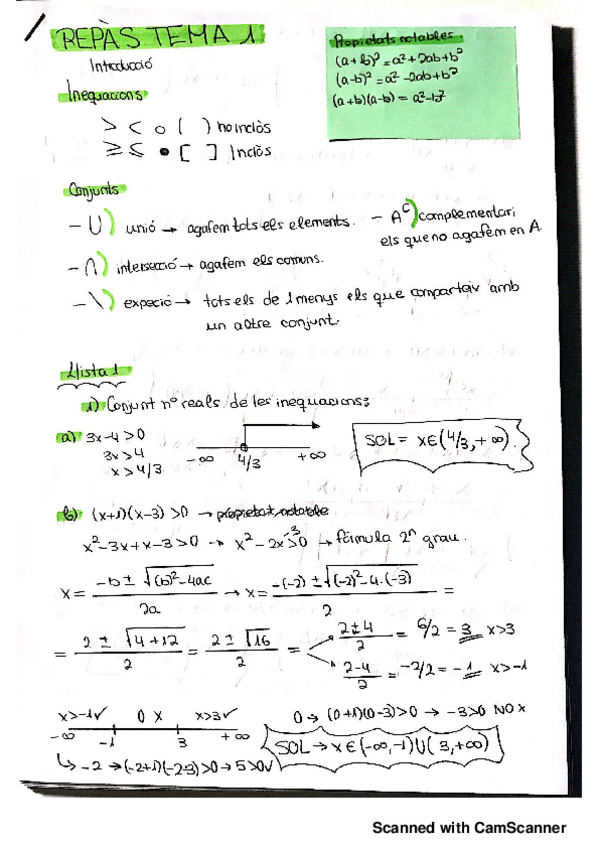 REPÀS TEMA 1
Introducció
Propietats notables.
(a+b)² = a² + 2ab + b²
(a-b)² = a² - 2ab + b²
(a+b)(a-b) = a² - b²
Inequacions
> < o ( ) no inclòs
≥ ≤ • [ ] Inclòs
Conjunts
- U) unió → agafem tots els elements.
- Aᶜ) complementari
els que no agafem en A.
- ∩) intersecció → agafem els comuns.
- \) expeció → tots els de 1 menys els que comparteix amb
un altre conjunt.
Llista 1
1) Conjunt nº reals de les inequacions:
a) 3x-4>0
3x>4
x>4/3
-∞ 4/3 +∞
SOL = x∈(4/3, +∞).
b) (x+1)(x-3) >0 → propietat notable
x²-3x+x-3>0 → x²-2x-3>0 → fórmula 2ⁿ grau.
x = -b ± √(b)²-4ac / 2a → x = -(-2) ± √(-2)²-4·(-3) / 2 =
= 2 ± √4+12 / 2 = 2 ± √16 / 2 =
2±4 / 2 = 6/2 = 3 x>3
2-4 / 2 = -2/2 = -1 x>-1
x>-1✓ 0 x x>3✓
-∞ -1 3 +∞
0 → (0+1)(0-3)>0 → -3>0 NO x
SOL → x∈(-∞,-1)U(3,+∞)
↳ -2 → (-2+1)(-2-3)>0 → 5>0✓
Scanned with CamScanner